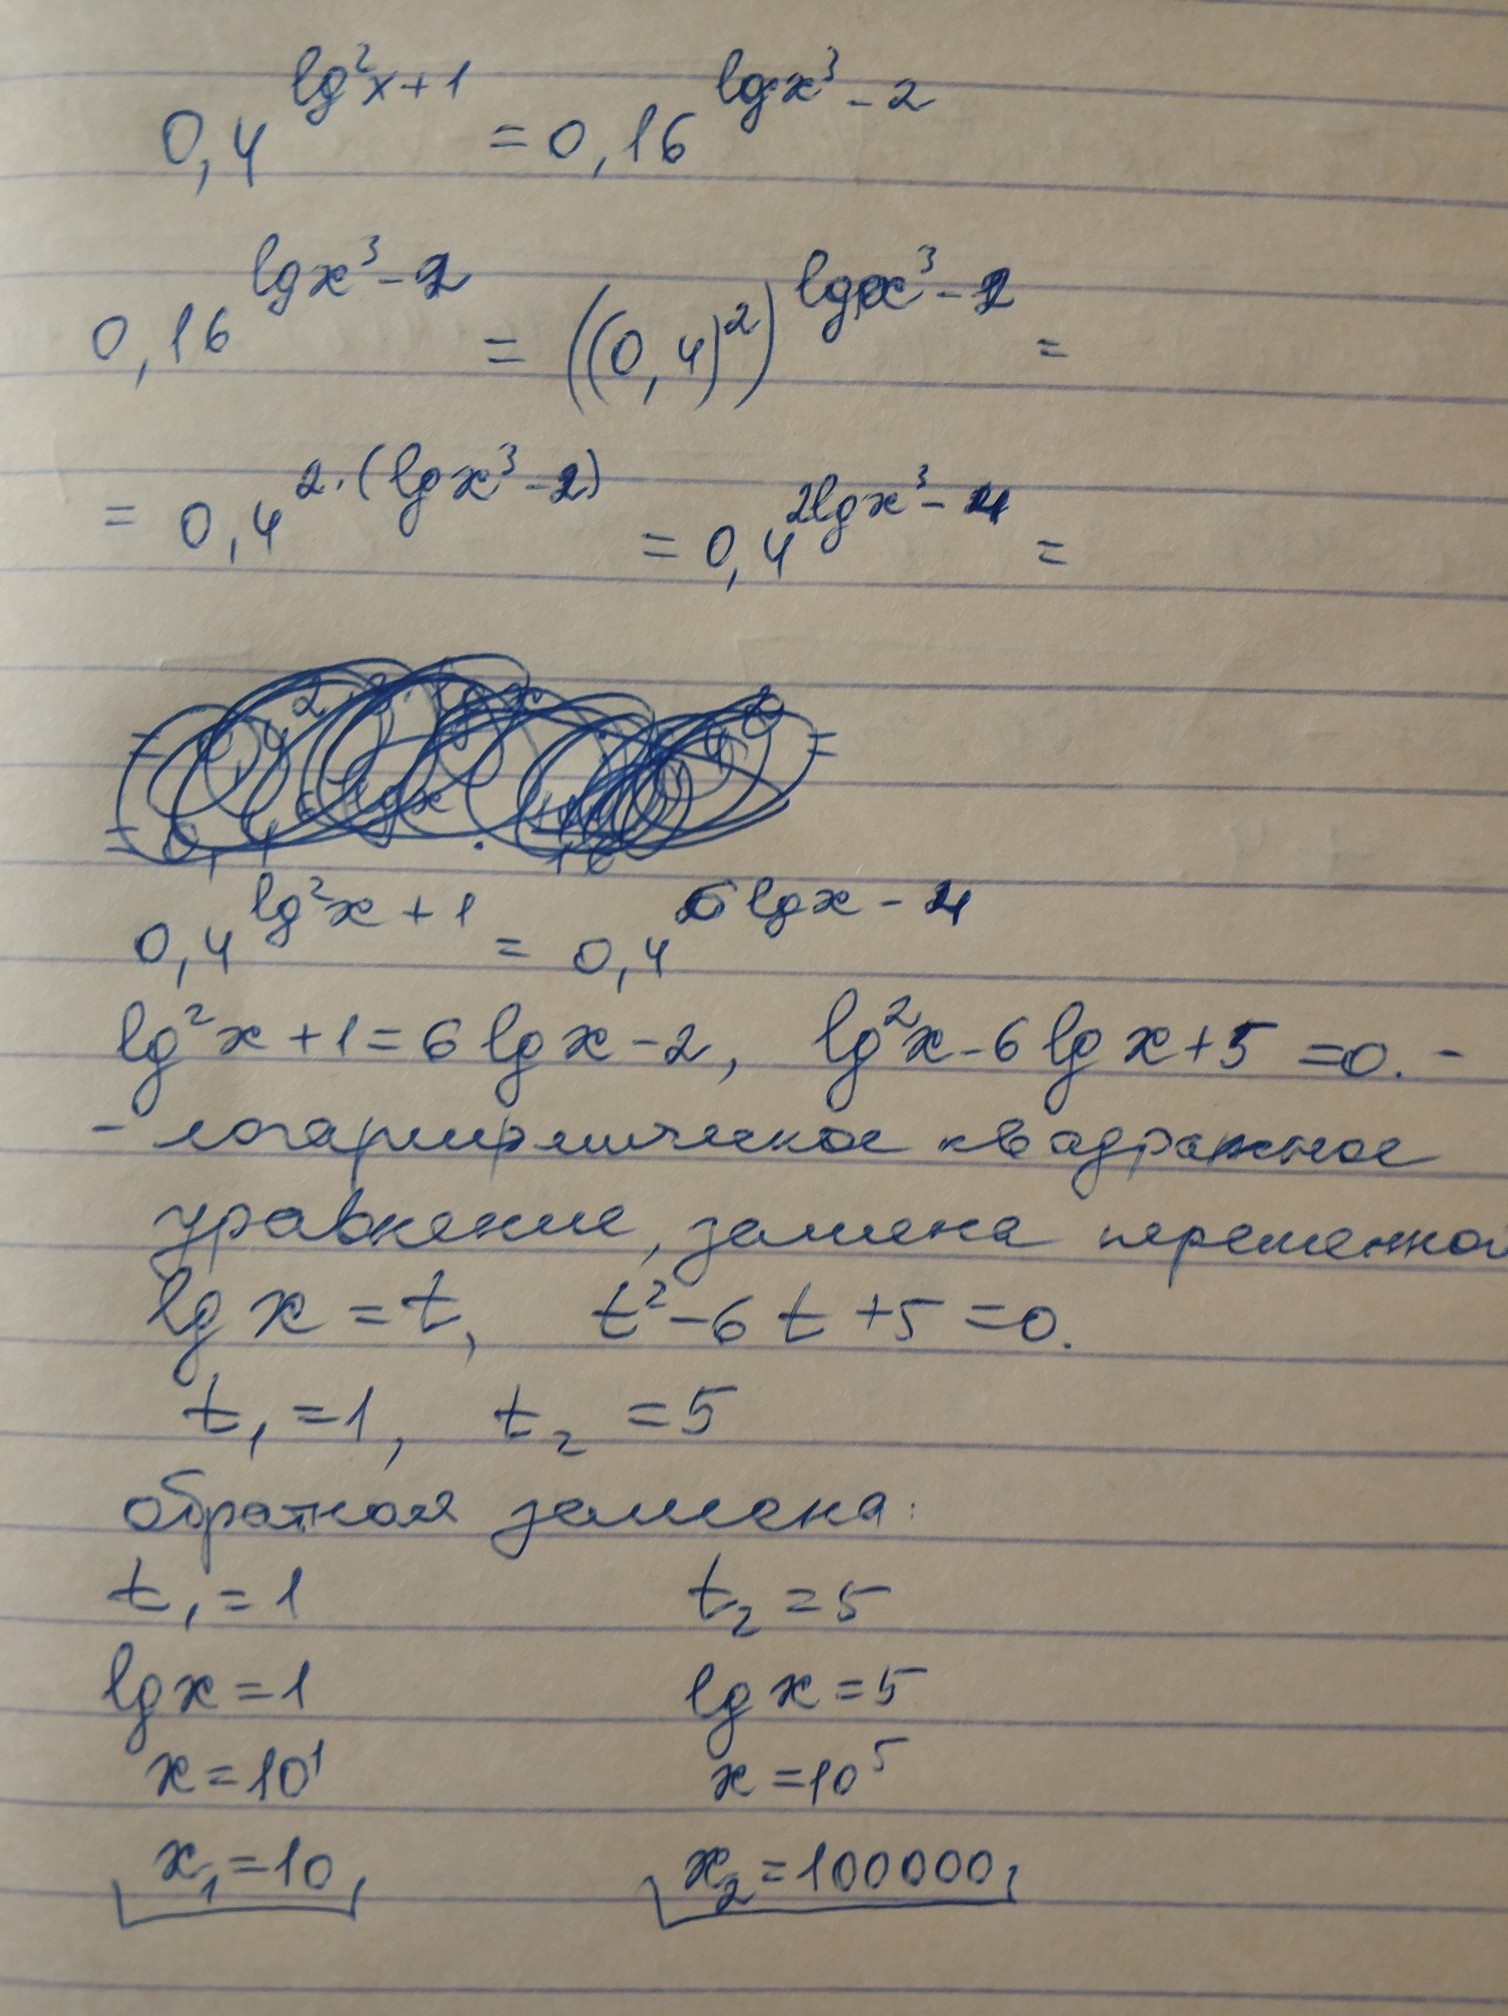 0,4^(lg²x+1) = 0,16^(lgx³-2)
0,16^(lgx³-2) = ((0,4)²)^(lgx³-2) =
= 0,4^(2·(lgx³-2)) = 0,4^(2lgx³-4) =
0,4^(lg²x+1) = 0,4^(6lgx-4)
lg²x+1=6lgx-2, lg²x-6lgx+5=0. -
- логарифмическое квадратное
уравнение, замена переменной
lgx=t, t²-6t+5=0.
t₁=1, t₂=5
обратная замена:
t₁=1 t₂=5
lgx=1 lgx=5
x=10¹ x=10⁵
x₁=10, x₂=100000,